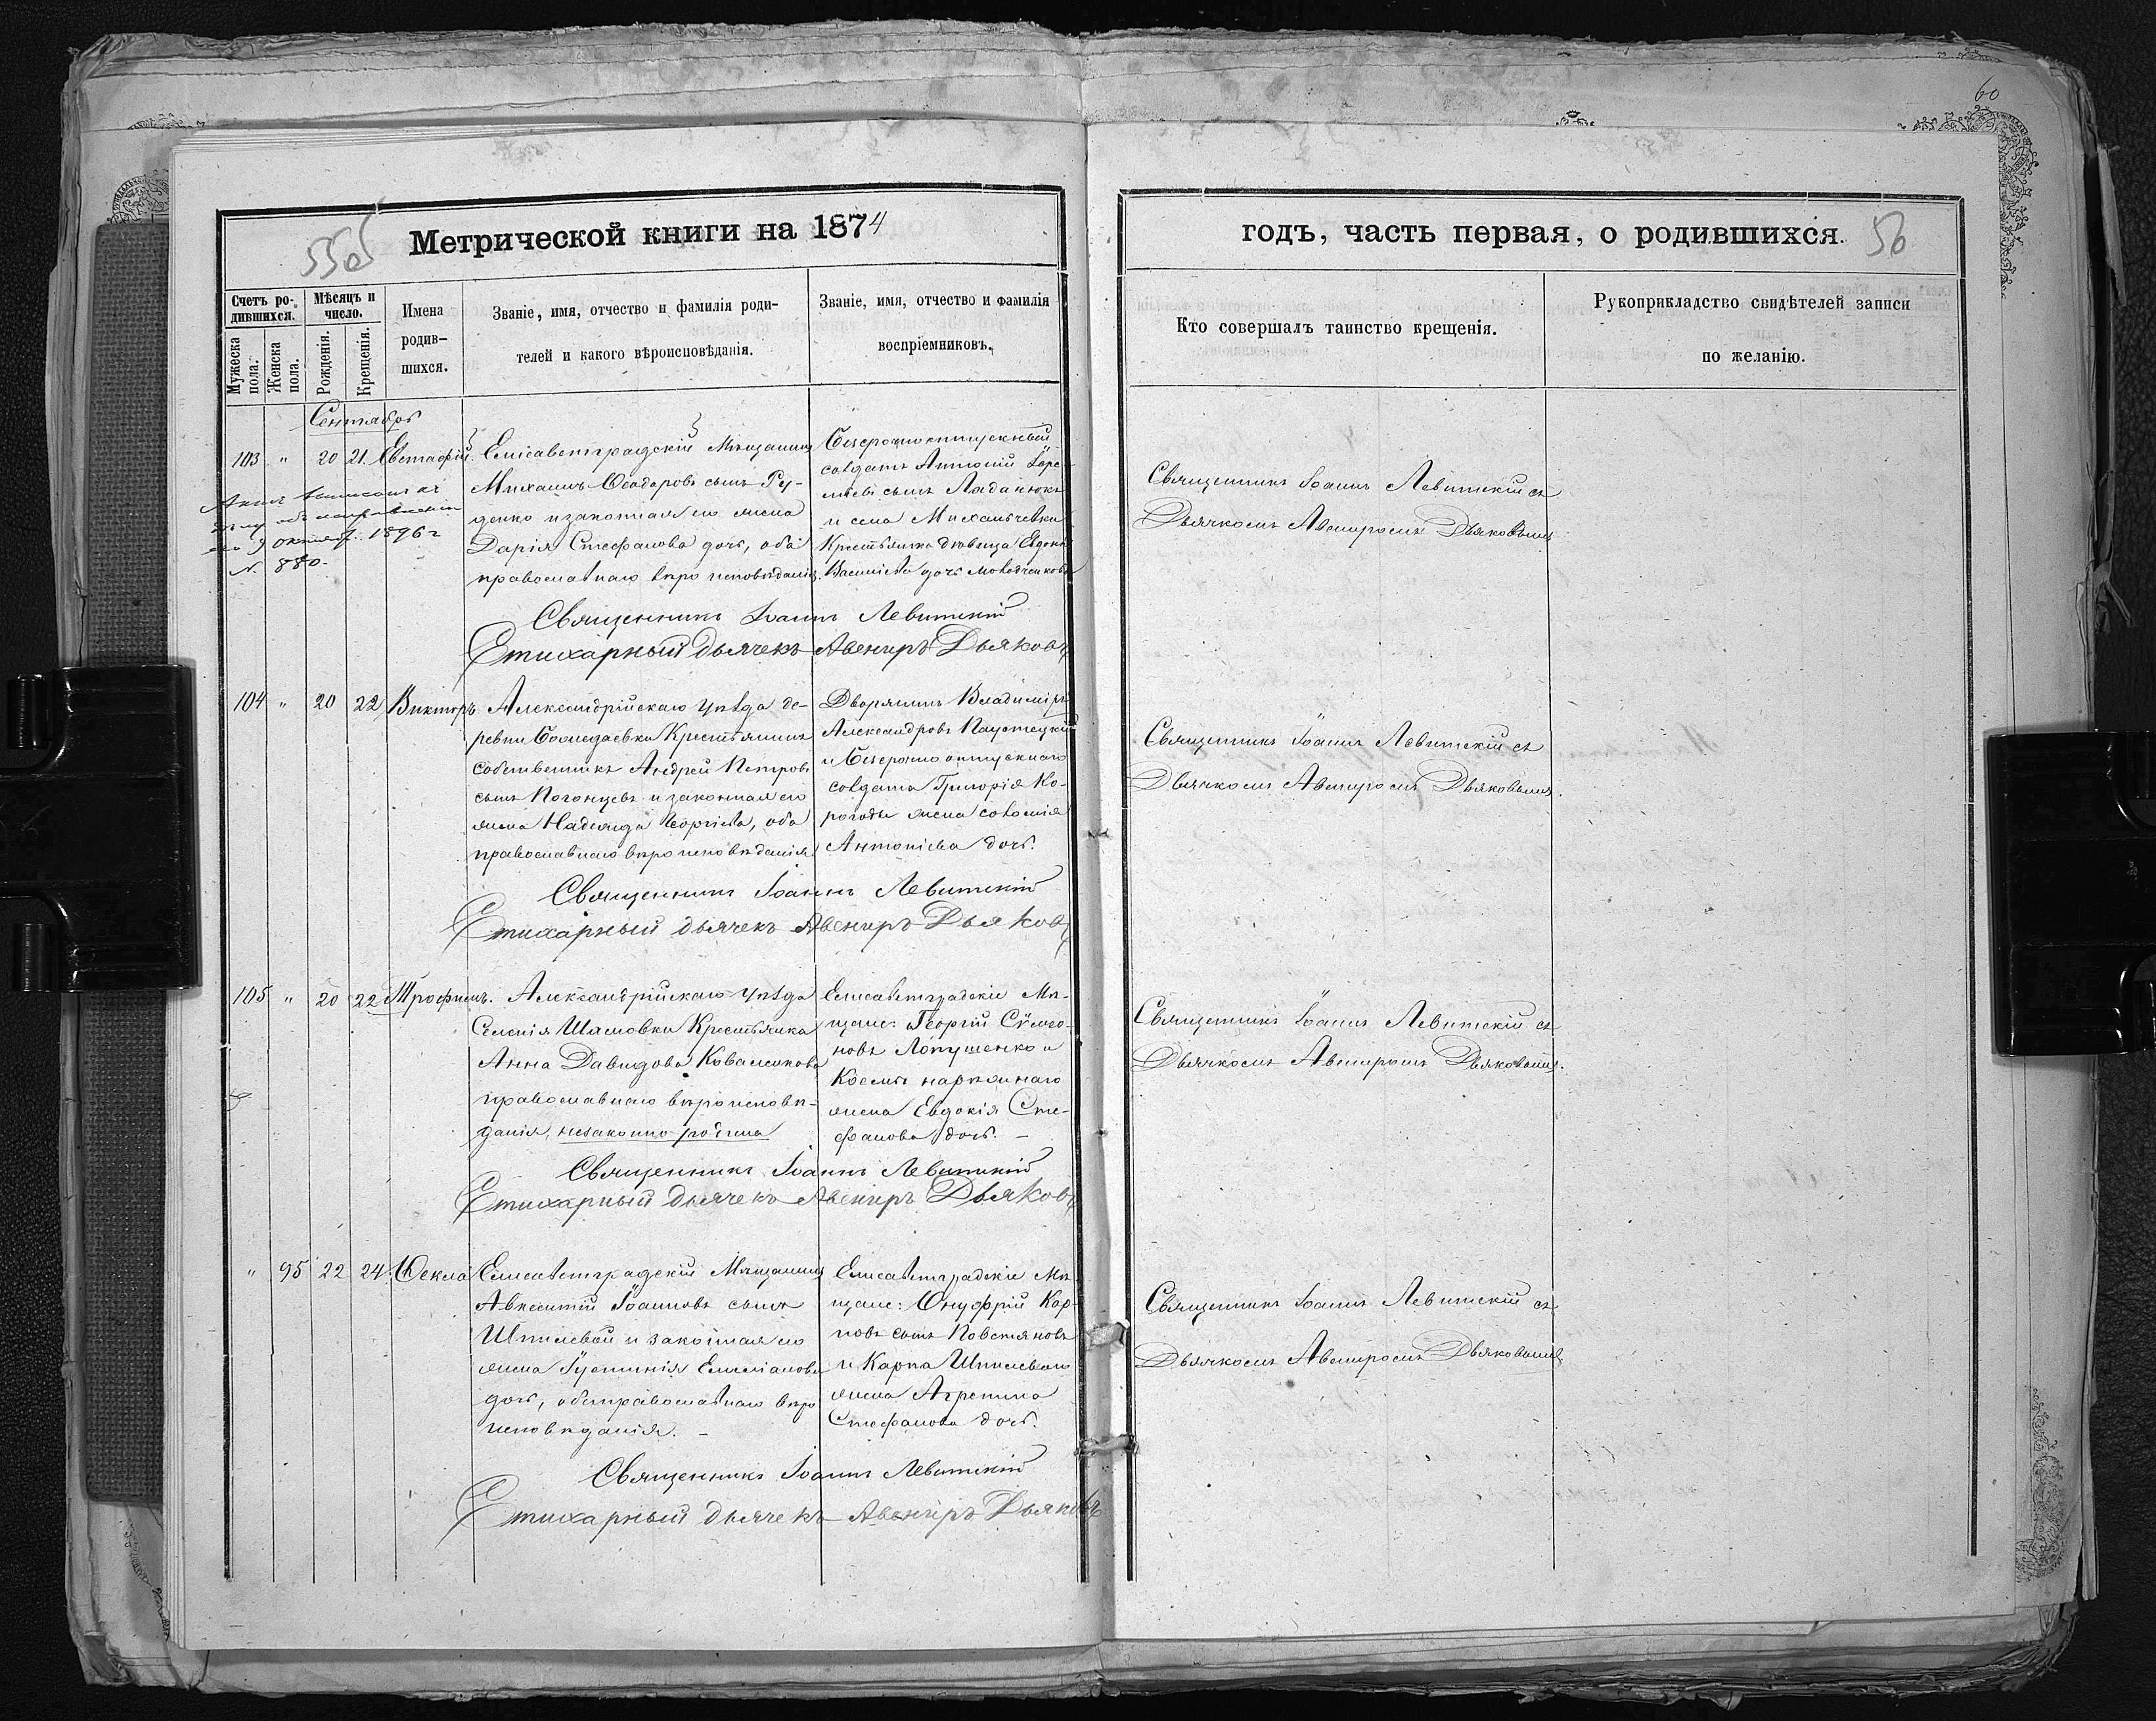 60
555
Метрической книги на 1874
Счетъ ро-
дившихся.
Мужеска
пола.
Женска
пола.
Мѣсяцъ и
число.
Рожденія.
Крещенія.
Имена
родив-
шихся.
Званіе, имя, отчество и фамилія роди-
телей и какого вѣроисповѣданія.
Званіе, имя, отчество и фамилія
воспріемниковъ.
Сентябрь
103 " 20 21 Евстафій
Елисаветградскій Мѣщанинъ
Михаилъ Ѳеодоровъ сынъ Ру-
денко и законная его жена
Дарія Стефанова дочь, оба
православнаго вѣроисповѣданія.
Безсрочноотпускной
солдатъ Антоній
сынъ Ладанюкъ
и села Михальчевки
Крестьянка дѣвица Евдокія
Василіева дочь
9 октября 1896 г
№ 880.
Священникъ Іоаннъ Левитскій
Стихарный дьячекъ Авениръ Дьяковъ
104 " 20 22 Викторъ
Александрійскаго уѣзда де-
ревни Крестьянинъ
собственникъ Андрей Петровъ
сынъ Погонцевъ и законная его
жена Надежда Георгіева, оба
православнаго вѣроисповѣданія.
Дворянинъ Владиміръ
Александровъ
и Безсрочно отпускнаго
солдата Григорія Ко-
рогоды жена Соломія
Антоніева дочь.
Священникъ Іоаннъ Левитскій
Стихарный дьячекъ Авениръ Дьяковъ
105 " 20 22 Трофимъ.
Александрійскаго уѣзда
Селенія Шамовки Крестьянка
Анна Давидова Ковалюкова
православнаго вѣроисповѣ-
данія, незаконно родила
Елисаветградскіе Мѣ-
щане: Георгій Сѵмео-
новъ Лопушенко и
Космы
жена Евдокія Сте-
фанова дочь. –
Священникъ Іоаннъ Левитскій
Стихарный дьячекъ Авениръ Дьяковъ
" 95 22 24 Ѳекла
Елисаветградскій Мѣщанинъ
Авксентій Іоанновъ сынъ
Шпилевой и законная его
жена Іустинія Емиліанова
дочь, оба православнаго вѣро
исповѣданія. –
Елисаветградскіе Мѣ-
щане: Онуфрій Кар-
повъ сынъ Повстяновъ
и Карпа Шпилеваго
жена Агрепина
Стефанова дочь.
Священникъ Іоаннъ Левитскій
Стихарный дьячекъ Авениръ Дьяковъ
годъ, часть первая, о родившихся.
50
Кто совершалъ таинство крещенія.
Рукоприкладство свидѣтелей записи
по желанію.
Священникъ Іоаннъ Левитскій съ
Дьячкомъ Авениромъ Дьяковымъ
Священникъ Іоаннъ Левитскій съ
Дьячкомъ Авениромъ Дьяковымъ.
Священникъ Іоаннъ Левитскій съ
Дьячкомъ Авениромъ Дьяковымъ.
Священникъ Іоаннъ Левитскій съ
Дьячкомъ Авениромъ Дьяковымъ.